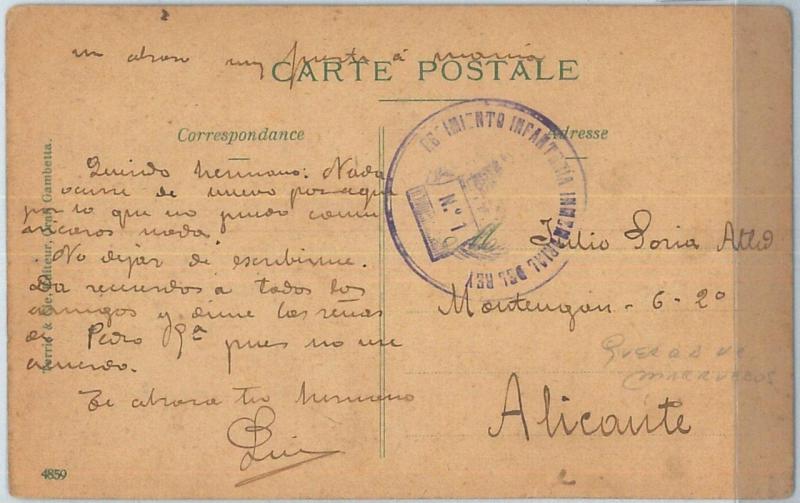 un abrazo muy fuerte á mamá
CARTE POSTALE
Correspondance
Adresse
Querido hermano: Nada
ocurre de nuevo por aqui
por lo que no puedo comu
nicaros nada.
No dejar de escribirme.
Da recuerdos á todos los
amigos y dime las señas
de Pedro Gª pues no me
acuerdo.
Te abraza tu hermano
Luis
REGIMIENTO INFANTERIA INMEMORIAL DEL REY
Nº 1
Julio Soria
Montengón - 6 - 2º
Alicante
MARRUECOS
& Cie. Editeur, Oran Gambetta.
4859